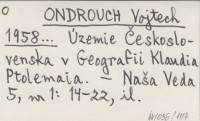 O
ONDROUCH Vojtech
1958... Územie Českoslo-
venska v Geografii Klaudia
Ptolemaia. — Naša Veda
5, no 1: 14-22, il.